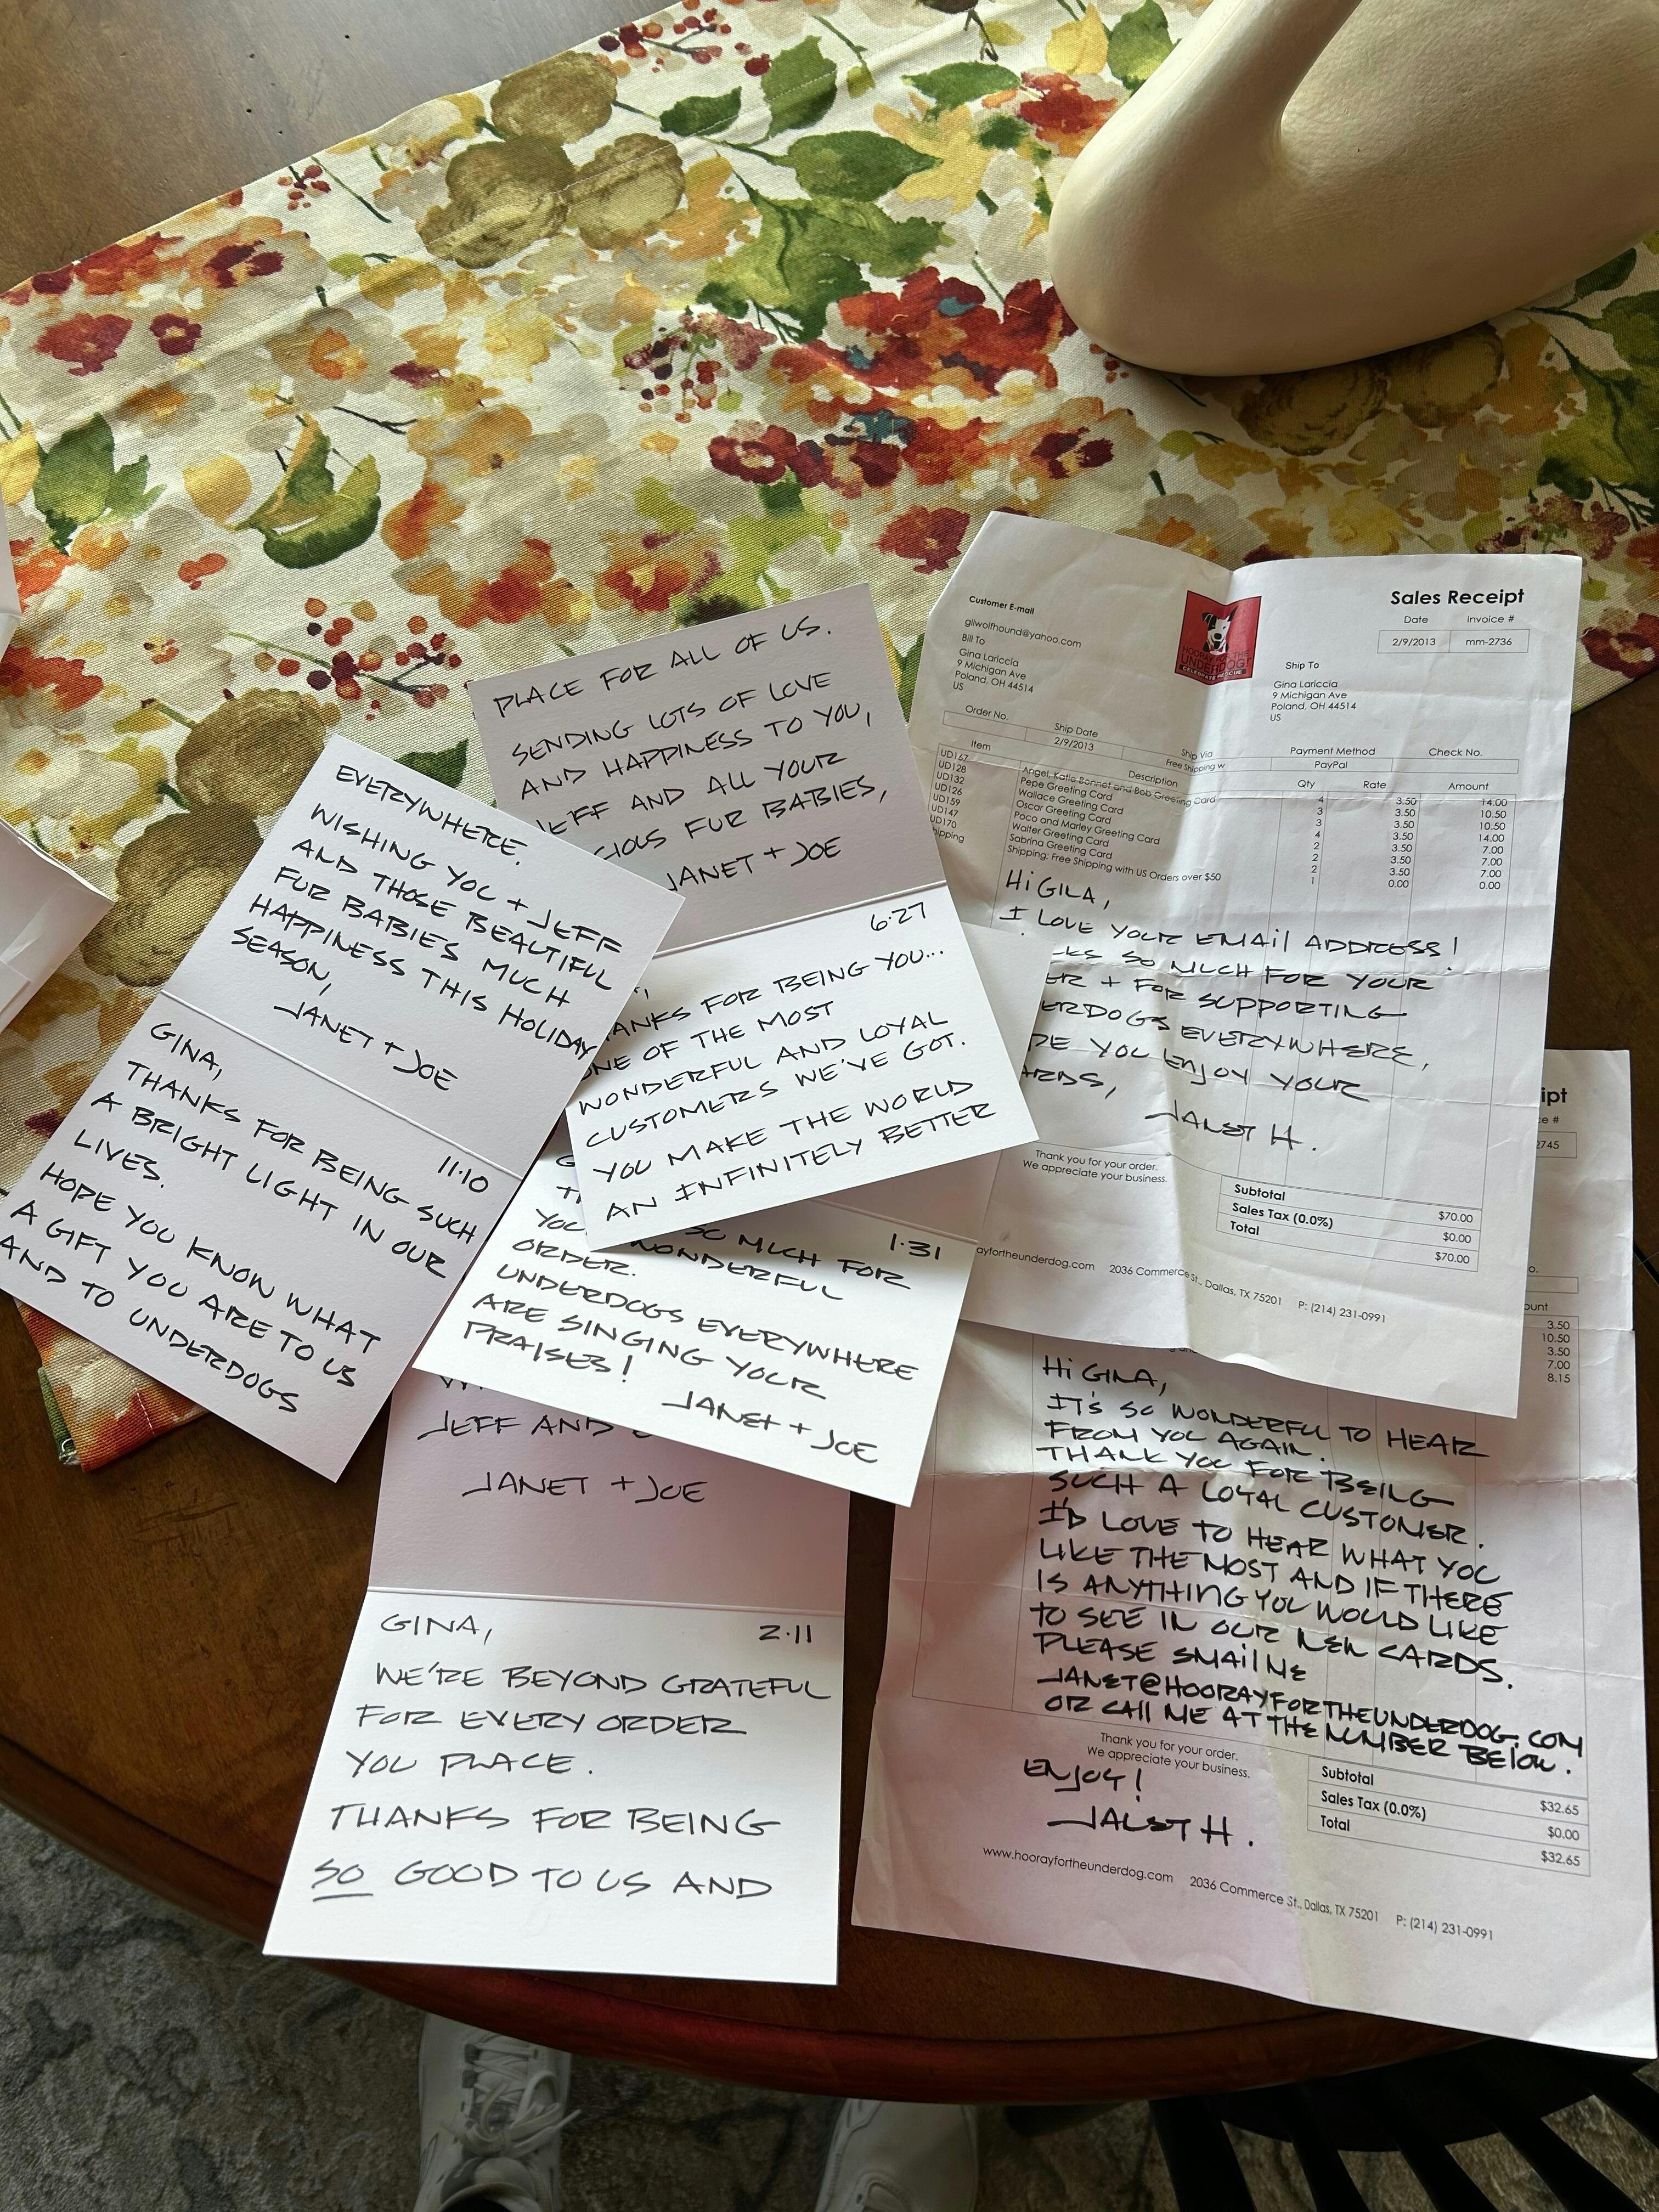 PLACE FOR ALL OF US.
SENDING LOTS OF LOVE
AND HAPPINESS TO YOU,
JEFF AND ALL YOUR
FUR BABIES,
JANET + JOE
6·27
THANKS FOR BEING YOU...
ONE OF THE MOST
WONDERFUL AND LOYAL
CUSTOMERS WE'VE GOT.
YOU MAKE THE WORLD
AN INFINITELY BETTER
EVERYWHERE.
WISHING YOU + JEFF
AND THOSE BEAUTIFUL
FUR BABIES MUCH
HAPPINESS THIS HOLIDAY
SEASON,
JANET + JOE
11·10
GINA,
THANKS FOR BEING SUCH
A BRIGHT LIGHT IN OUR
LIVES.
HOPE YOU KNOW WHAT
A GIFT YOU ARE TO US
AND TO UNDERDOGS
1·31
SO MUCH FOR
WONDERFUL
ORDER.
UNDERDOGS EVERYWHERE
ARE SINGING YOUR
PRAISES!
JANET + JOE
JEFF AND
JANET + JOE
GINA,
2·11
WE'RE BEYOND GRATEFUL
FOR EVERY ORDER
YOU PLACE.
THANKS FOR BEING
SO GOOD TO US AND
Customer E-mail
gilwolfhound@yahoo.com
Bill To
Gina Lariccia
9 Michigan Ave
Poland, OH 44514
US
HOORAY FOR THE
UNDERDOG!
CELEBRATE RESCUE
Sales Receipt
Date Invoice #
2/9/2013 mm-2736
Ship To
Gina Lariccia
9 Michigan Ave
Poland, OH 44514
US
Order No. Ship Date Ship Via Payment Method Check No.
2/9/2013 Free Shipping w PayPal
Item Description Qty Rate Amount
UD167 Angel, Katie Bonnet and Bob Greeting Card 4 3.50 14.00
UD128 Pepe Greeting Card 3 3.50 10.50
UD132 Wallace Greeting Card 3 3.50 10.50
UD126 Oscar Greeting Card 4 3.50 14.00
UD159 Poco and Marley Greeting Card 2 3.50 7.00
UD147 Walter Greeting Card 2 3.50 7.00
UD170 Sabrina Greeting Card 2 3.50 7.00
hipping Shipping: Free Shipping with US Orders over $50 1 0.00 0.00
Hi GINA,
I LOVE YOUR EMAIL ADDRESS!
SO MUCH FOR YOUR
+ FOR SUPPORTING
ERDOGS EVERYWHERE,
YOU ENJOY YOUR
ARDS,
JANET H.
Thank you for your order.
We appreciate your business.
Subtotal $70.00
Sales Tax (0.0%) $0.00
Total $70.00
ayfortheunderdog.com 2036 Commerce St., Dallas, TX 75201 P: (214) 231-0991
ipt
e #
2745
o.
ount
3.50
10.50
3.50
7.00
8.15
Hi GINA,
IT'S SO WONDERFUL TO HEAR
FROM YOU AGAIN.
THANK YOU FOR BEING
SUCH A LOYAL CUSTOMER.
I'D LOVE TO HEAR WHAT YOU
LIKE THE MOST AND IF THERE
IS ANYTHING YOU WOULD LIKE
TO SEE IN OUR NEW CARDS.
PLEASE EMAIL ME
JANET@HOORAYFORTHEUNDERDOG.COM
OR CALL ME AT THE NUMBER BELOW.
Thank you for your order.
We appreciate your business.
ENJOY!
JANET H.
Subtotal $32.65
Sales Tax (0.0%) $0.00
Total $32.65
www.hoorayfortheunderdog.com 2036 Commerce St., Dallas, TX 75201 P: (214) 231-0991